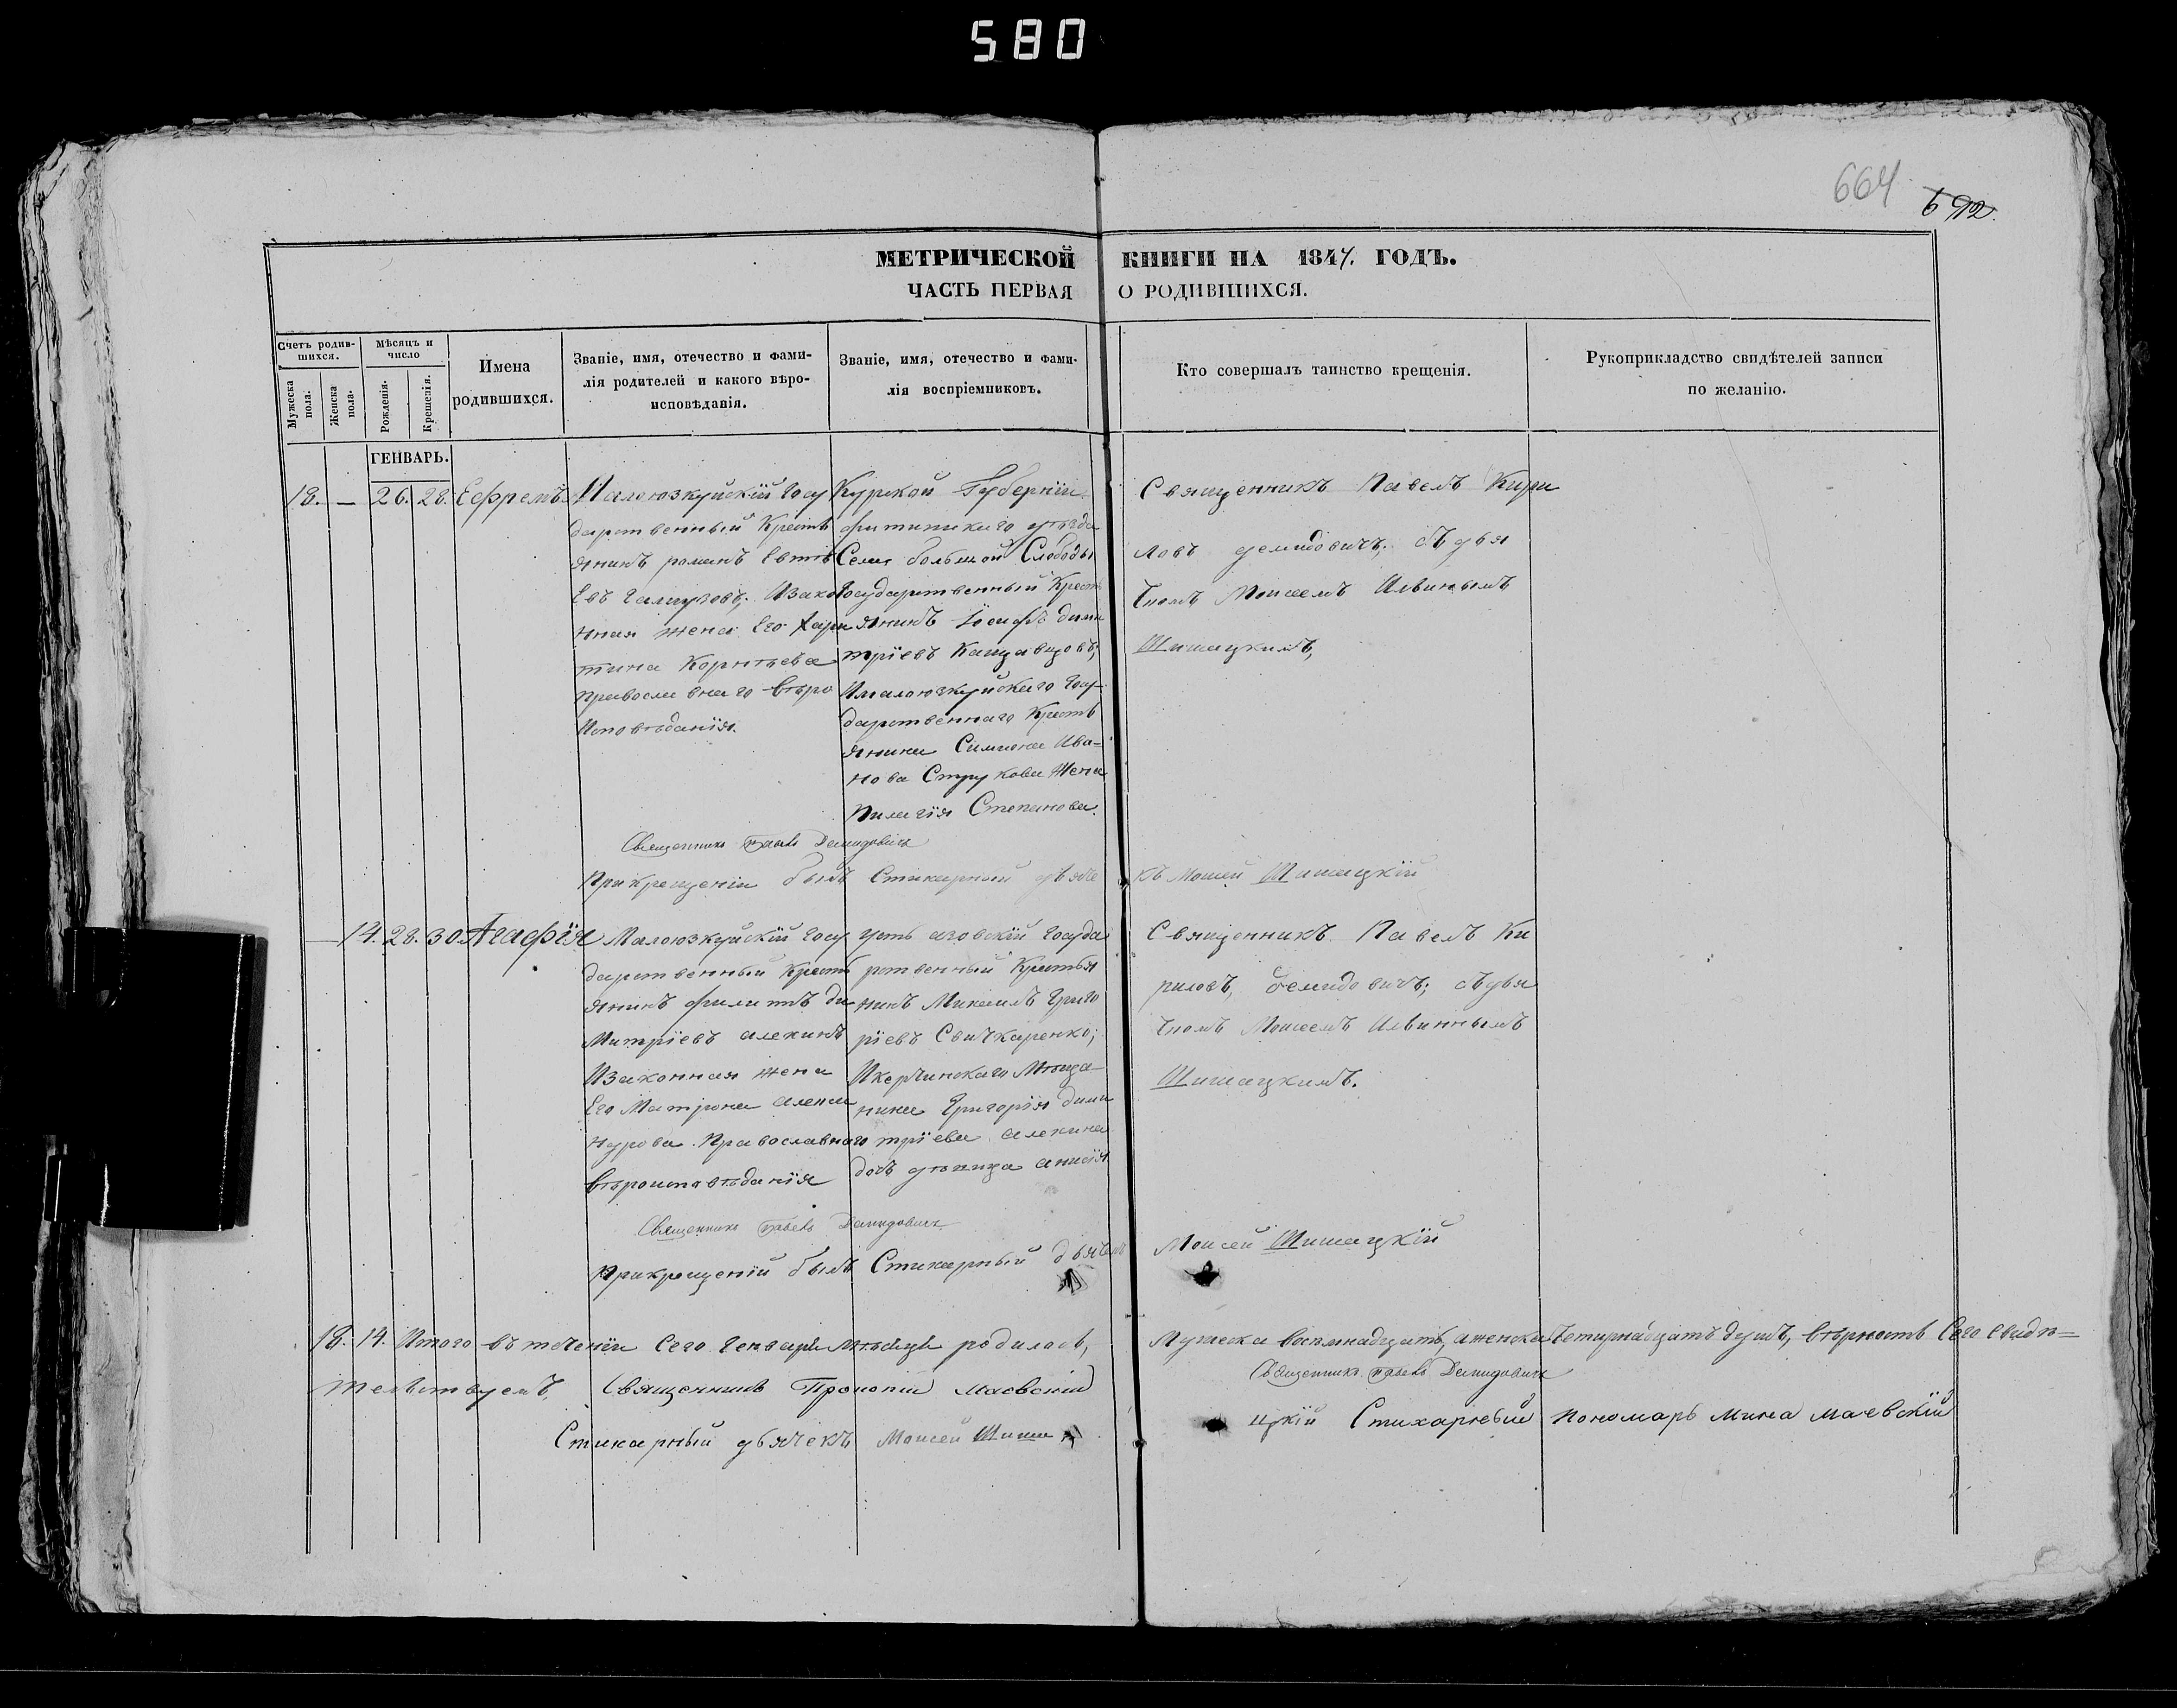 580
664
692.
МЕТРИЧЕСКОЙ КНИГИ НА 1847. ГОДЪ.
ЧАСТЬ ПЕРВАЯ О РОДИВШИХСЯ.
Счетъ родив-
шихся.
Мужеска
пола.
Женска
пола.
Мѣсяцъ и
число
Рожденія.
Крещенія.
Имена
родившихся.
Званіе, имя, отечество и фами-
лія родителей и какого вѣро-
исповѣданія.
Званіе, имя, отечество и фами-
лія воспріемниковъ.
Кто совершалъ таинство крещенія.
Рукоприкладство свидѣтелей записи
по желанію.
ГЕНВАРЬ.
18. — 26. 28. Ефремъ
Малоюзкуйскій Госу
дарственный Кресть
янинъ романъ Евтѣ
Евъ Изако
нная жена Его Хари
тина Корнѣева
православнаго вѣро
Исповѣданія.
Курской Губерніи
уѣзда
Села большой Слободы
Государственный Кресть
янинъ Іосифъ дими
тріевъ
Ималоюзкуйскаго Госу
дарственнаго Кресть
янина Симиона Ива=
нова Струкова Жена
Пилагія Степанова.
Священникъ Павелъ Кири
ловъ демидовичъ; съ дья
чкомъ Моисеемъ Ильинымъ
Шишацкимъ,
Священникъ Павелъ Демидовичъ
Прикрещеніи былъ Стихарный дьяче
къ Моисей Шишацкій
— 14. 28. 30 Агафія
Малоюзкуйскій Госу
дарственный Кресть
янинъ филипъ Ди
Митріевъ алекинъ
Изаконная жена
Его Матрона алекса
ндрова. Православнаго
вѣроисповѣданія
Государственный Крестья
нинъ Михаилъ Григо
ріевъ Свичкаренко;
Икерчинскаго Мѣща
нина Григорія дими
тріева алекина
дочь дѣвица анисія
Священникъ Павелъ Ки
риловъ, демидовичъ; съ дья
чкомъ Моисеемъ Ильиннымъ
Шишацкимъ.
Священникъ Павелъ Демидовичъ
Прикрещеніи былъ Стихарный дьячекъ Моисей Шишацкій
18. 14. Итого въ теченіи Сего Генваря мѣсяца родилось, Мужеска восемнадцать, аженска Четырнадцать душъ, вѣрность Сего свидѣ=
тельствуемъ, Священникъ Прокопій Маевскій
Священникъ Павелъ Демидовичъ
Стихарный дьячекъ Моисей Шиша
цкій Стихарный пономарь Мина Маевскій